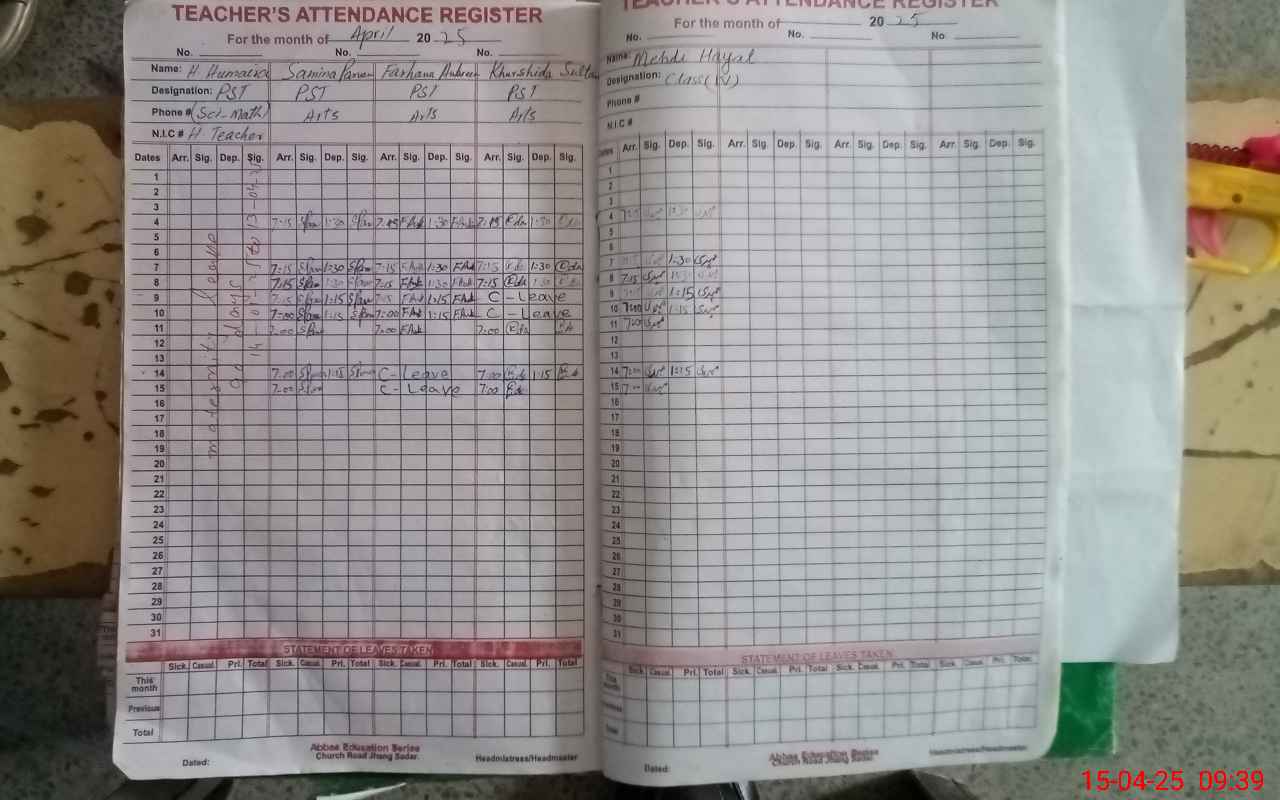 TEACHER'S ATTENDANCE REGISTER
For the month of April 2025
No. No. No.
Name: H Humaira Samina Farhana Khurshida
Designation: PST PST PST PST
Phone # (Sci-Math) Arts Arts Arts
N.I.C # H Teacher
Dates Arr. Sig. Dep. Sig. Arr. Sig. Dep. Sig. Arr. Sig. Dep. Sig. Arr. Sig. Dep. Sig.
maternity Leave
90 days
1
2
3
4 7:15 1:30 7:15 1:30 7:15 1:30
5
6
7 7:15 1:30 7:15 1:30 7:15 1:30
8 7:15 1:30 7:15 1:30 7:15 1:30
9 7:15 1:15 7:15 1:15 C - Leave
10 7:00 1:15 7:00 1:15 C - Leave
11 7:00 7:00 7:00
12
13
14 7:00 1:15 C - Leave 7:00 1:15
15 7:00 C - Leave 7:00
16
17
18
19
20
21
22
23
24
25
26
27
28
29
30
31
STATEMENT OF LEAVES TAKEN
Sick. Casual. Pri. Total Sick. Casual. Pri. Total Sick. Casual. Pri. Total Sick. Casual. Pri. Total
This month
Previous
Total
Abbas Education Series
Church Road Jhang Sadar.
Dated: Headmistress/Headmaster
TEACHER'S ATTENDANCE REGISTER
For the month of 2025
No. No. No.
Name: Mehdi Hayat
Designation: Class (IV)
Phone #
N.I.C #
Dates Arr. Sig. Dep. Sig. Arr. Sig. Dep. Sig. Arr. Sig. Dep. Sig. Arr. Sig. Dep. Sig.
1
2
3
4 7:15 1:30
5
6
7 1:30
8 7:15 1:30
9 1:15
10 7:00 1:15
11 7:00
12
13
14 7:00 1:15
15 7:00
16
17
18
19
20
21
22
23
24
25
26
27
28
29
30
31
STATEMENT OF LEAVES TAKEN
Sick. Casual. Pri. Total Sick. Casual. Pri. Total Sick. Casual. Pri. Total Sick. Casual. Pri. Total
This month
Previous
Total
Abbas Education Series
Church Road Jhang Sadar.
Dated: Headmistress/Headmaster
15-04-25 09:39